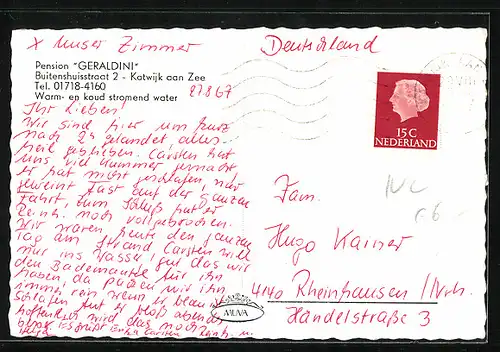 x Unser Zimmer
Deutschland
Pension "GERALDINI"
Buitenshuisstraat 2 - Katwijk aan Zee
Tel. 01718-4160
Warm- en koud stromend water
27.8.67
Ihr Lieben!
Wir sind hier um kurz
nach 2h gelandet, alles
heil geblieben. Carsten hat
uns viel Kummer gemacht
er hat nicht geschlafen, nur
geweint fast auf der ganzen
Fahrt, zum Schluß hat er
Reinh. noch vollgebrochen.
Wir waren heute den ganzen
Tag am Strand Carsten will
nur ins Wasser, gut das wir
den Bademantel für ihn
haben, da packen wir ihn
immer rein wenn er blau ist
schlafen tut er bloß abends
hoffentlich wird das noch
besser Es grüßt Euch Carsten Reinh. u.
15 C
NEDERLAND
Fam.
Hugo Kaiser
4140 Rheinhausen /Nrh.
Händelstraße 3
MUVA